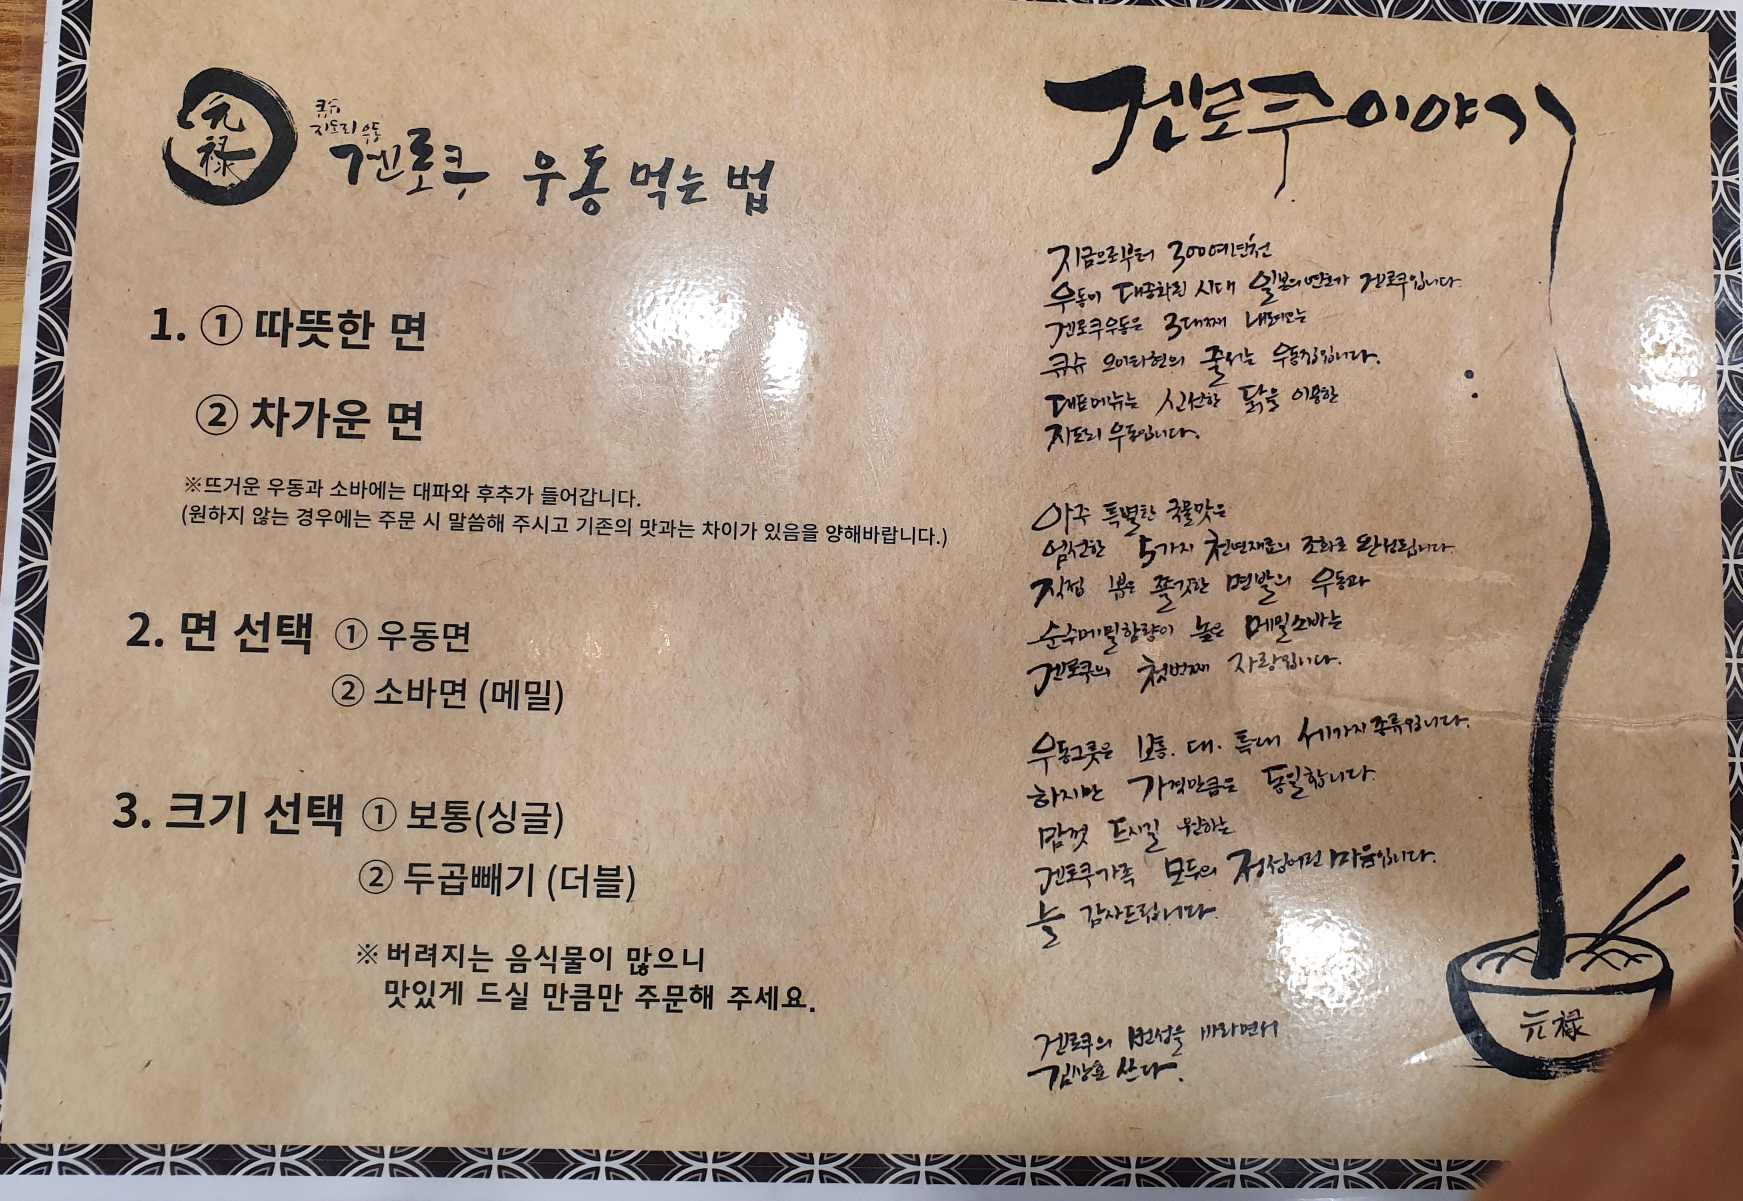 元
禄
큐슈
지도리우동
겐로쿠 우동 먹는 법
1. ① 따뜻한 면
② 차가운 면
※뜨거운 우동과 소바에는 대파와 후추가 들어갑니다.
(원하지 않는 경우에는 주문 시 말씀해 주시고 기존의 맛과는 차이가 있음을 양해바랍니다.)
2. 면 선택 ① 우동면
② 소바면 (메밀)
3. 크기 선택 ① 보통(싱글)
② 두곱빼기 (더블)
※버려지는 음식물이 많으니
맛있게 드실 만큼만 주문해 주세요.
겐로쿠이야기
지금으로부터 300여년전
우동이 대중화된 시대 일본의 연호가 겐로쿠입니다
겐로쿠우동은 3대째 내려오는
큐슈 오이타현의 줄서는 우동집입니다.
대표메뉴는 신선한 닭을 이용한
지도리 우동입니다.
아주 특별한 국물맛은
엄선한 5가지 천연재료의 조화로 완성됩니다
직접 뽑은 쫄깃한 면발의 우동과
순수메밀함량이 높은 메밀소바는
겐로쿠의 첫번째 자랑입니다.
우동그릇은 보통. 대. 특대 세가지 종류입니다.
하지만 가격만큼은 동일합니다.
맘껏 드시길 원하는
겐로쿠가족 모두의 정성어린 마음입니다.
늘 감사드립니다.
겐로쿠의 번성을 바라면서
김상훈 쓰다.
元禄